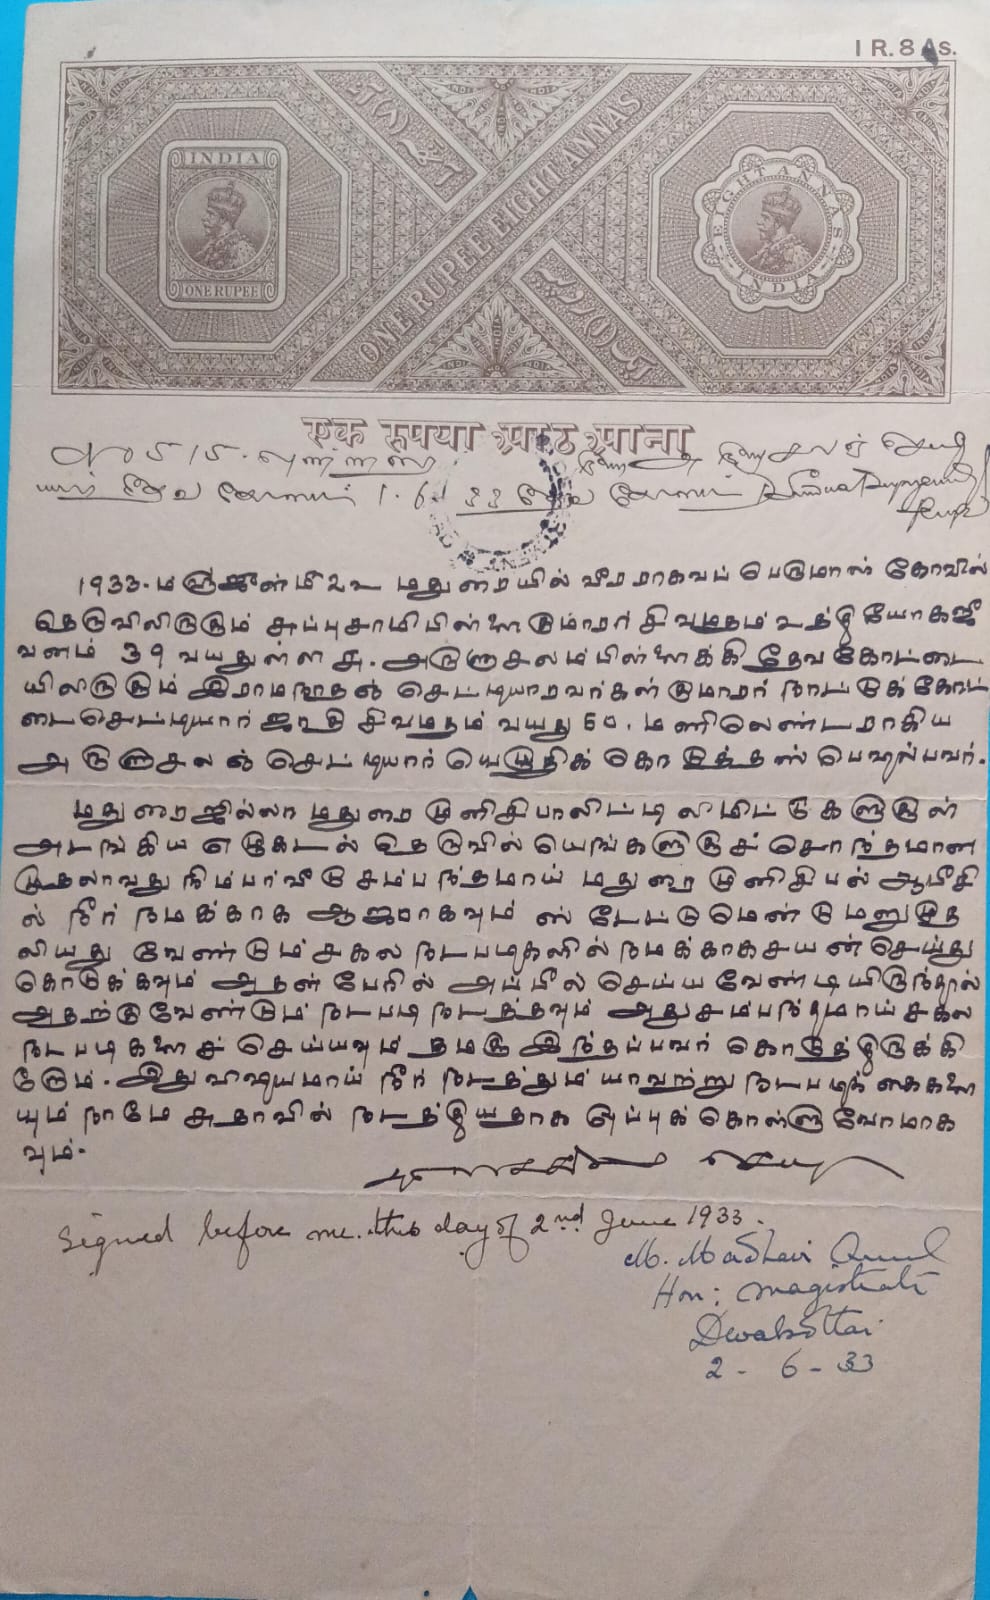 1 R. 8 As.
INDIA
ONE RUPEE
ONE RUPEE EIGHT ANNAS
EIGHT ANNAS
INDIA
एक रुपया आठ आना
1933-ம ௵ ஜூன் மீ 2 உ மதுரையில் வீரராகவப் பெருமாள் கோவில்
தெருவிலிருகும் அப்புசாமிபிள்ளை குமாரர் சிவமதம் உத்தியோகஜீ
வனம் 39 வயதுள்ள அருணாசலம்பிள்ளைக்கி தேவகோட்டை
யிலிருகும் இராமநாதஞ் செட்டியாரவர்கள் குமாரர் நாட்டுக்கோட்
டைசெட்டியார் ஜாதி சிவமதம் வயது 60.
அருணாசலஞ் செட்டியார் யெழுதிக் கொடுத்த ஸ்பெஷல்பவர்.
மதுரைஜில்லா மதுரை முனிசிபாலிட்டி லிமிட்டுகளுகுள்
அடங்கிய ஏழுகடல் தெருவில் யெங்களுகுச் சொந்தமான
நிம்பர்வீடு சம்பந்தமாய் மதுரை முனிசிபல் ஆபீசி
ல் நீர் நமக்காக ஆஜராகவும் ஸ்டேட்டுமெண்டு மனு முத
லியது வேண்டும் சகல நடபடிகளில் நமக்காக சயன் செய்து
கொடுக்கவும் அதன் பேரில் அப்பீல் செய்ய வேண்டியிருந்தால்
அதற்கு வேண்டும் நடபடி நடத்தவும் அது சம்பந்தமாய் சகல
நடபடிகளைச் செய்யவும் தமகு இந்தப்பவர் கொடுத்திருக்கி
றேம். இது விஷயமாய் நீர் நடத்தும் யாவற்று நடபடிக்கைகளை
யும் நாமே நடத்தியதாக ஒப்புக் கொள்ளுவோமாக
வும்.
Signed before me this day of 2nd June 1933.
M. Madhavi
Hon: Magistrate
Devakottai
2-6-33